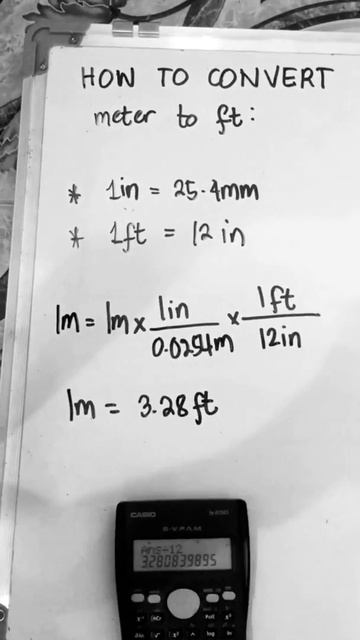 HOW TO CONVERT
meter to ft:
* 1in = 25.4mm
* 1ft = 12 in
1m = 1m x 1in/0.0254m x 1ft/12in
1m = 3.28ft
CASIO
S-V.P.A.M.
Ans÷12
3.280839895